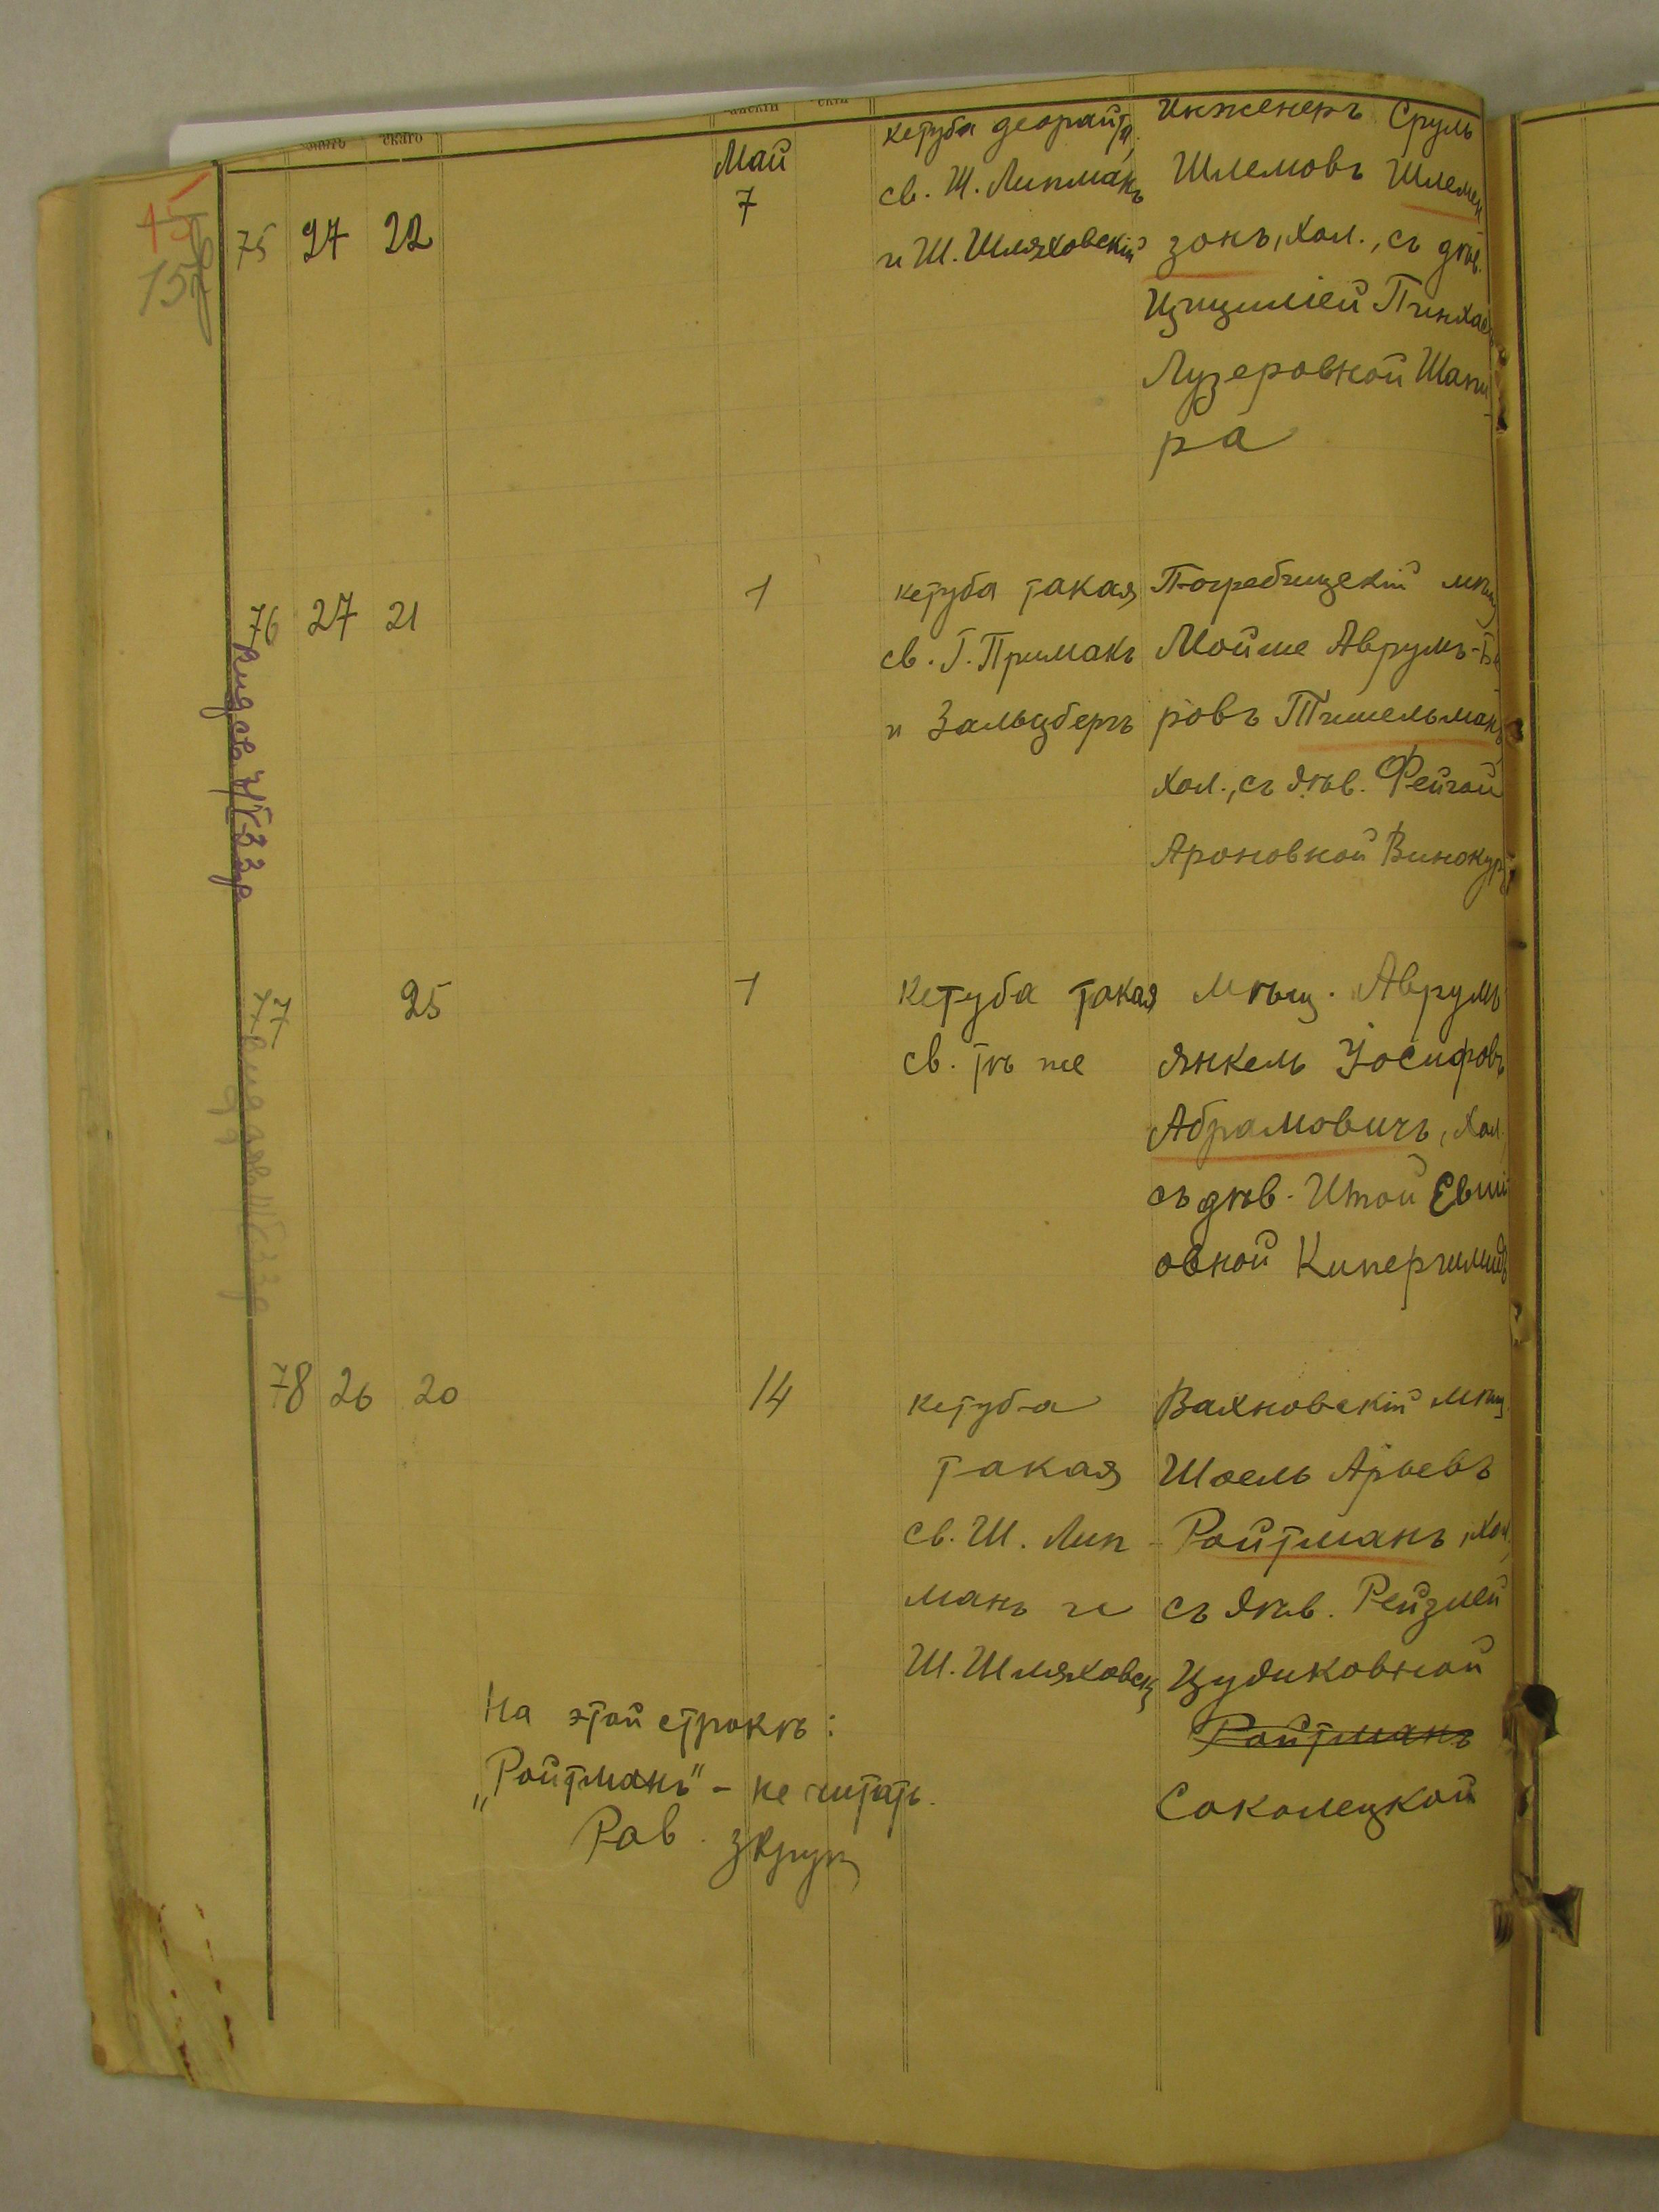 Май
75 27 22 7
кетуба деорайта,
св. Ш. Липманъ
и Ш. Шляховскій
Инженеръ Сруль
Шлемовъ Шлемен
зонъ, хол., съ дѣв.
Цицилiей Пинхас
Лузеровной Шапи
ра
76 27 21 1
кетуба такая
св. Г. Примакъ
и Зальцбергъ
Погребищскій мѣщ
Мойше Аврумъ-Бе
ровъ Тишельманъ
хол., съ дѣв. Фейгой
Ароновной Винокур
77 25 1
кетуба такая
св. тѣ же
мѣщ. Аврумъ
Янкель Іосифовъ
Абрамовичъ, хол.
съ дѣв. Итой Евши
овной Купершмидъ
78 26 20 14
кетуба
такая
св. Ш. Лип-
манъ и
Ш. Шляховск
Вахновскій мѣщ
Шоель Арьевъ
Ройтманъ, хол,
съ дѣв. Рейзлей
Цудиковной
Ройтманъ
Соколецкой
На этой строкѣ:
„Ройтманъ" - не читать.
Рав.